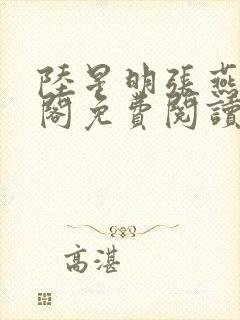 陸星明張燕
閣免費閱讀
高湛